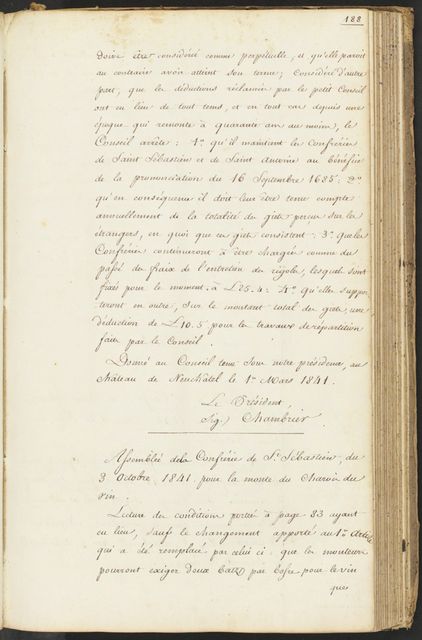 188
doive être considéré comme perpétuelle, et qu'elle paroit
au contraire avoir atteint son terme; Considéré d'autre
part, que les déductions réclamées par le petit Conseil
ont eu lieu de tout tems, et en tout cas depuis une
époque qui remonte à quarante ans au moins, le
Conseil arrête: 1º qu'il maintient les Confréries
de Saint Sébastien et de Saint Antoine au bénéfice
de la prononciation du 16 Septembre 1685: 2º
qu'en conséquence il doit leur être tenu compte
annuellement de la totalité du giete perçu sur les
étrangers, en quoi que ce giete consistent: 3º que les
Confréries continueront à être chargées comme du
passé des fraix de l'entretien du rigole, lesquels sont
fixés pour le moment à L 25.4: 4º qu'elles suppor
teront en outre, sur le montant total du giete, une
déduction de L 10.5 pour les travaux de répartition
faits par le Conseil.
Donné au Conseil tenu sous notre présidence, au
château de Neuchâtel le 1er Mars 1841.
Le Président,
Sig.) Chambrier.
Assemblée de la Confrérie de St Sébastien, du
3 Octobre 1841 pour la monte du Charroi du
vin.
Lecture des conditions portées à page 83 ayant
eu lieu, sauf le changement apporté au 1er Article
qui a été remplacé par celui ci: que les monteurs
pourront exiger deux Batz par Gerle pour le vin
que